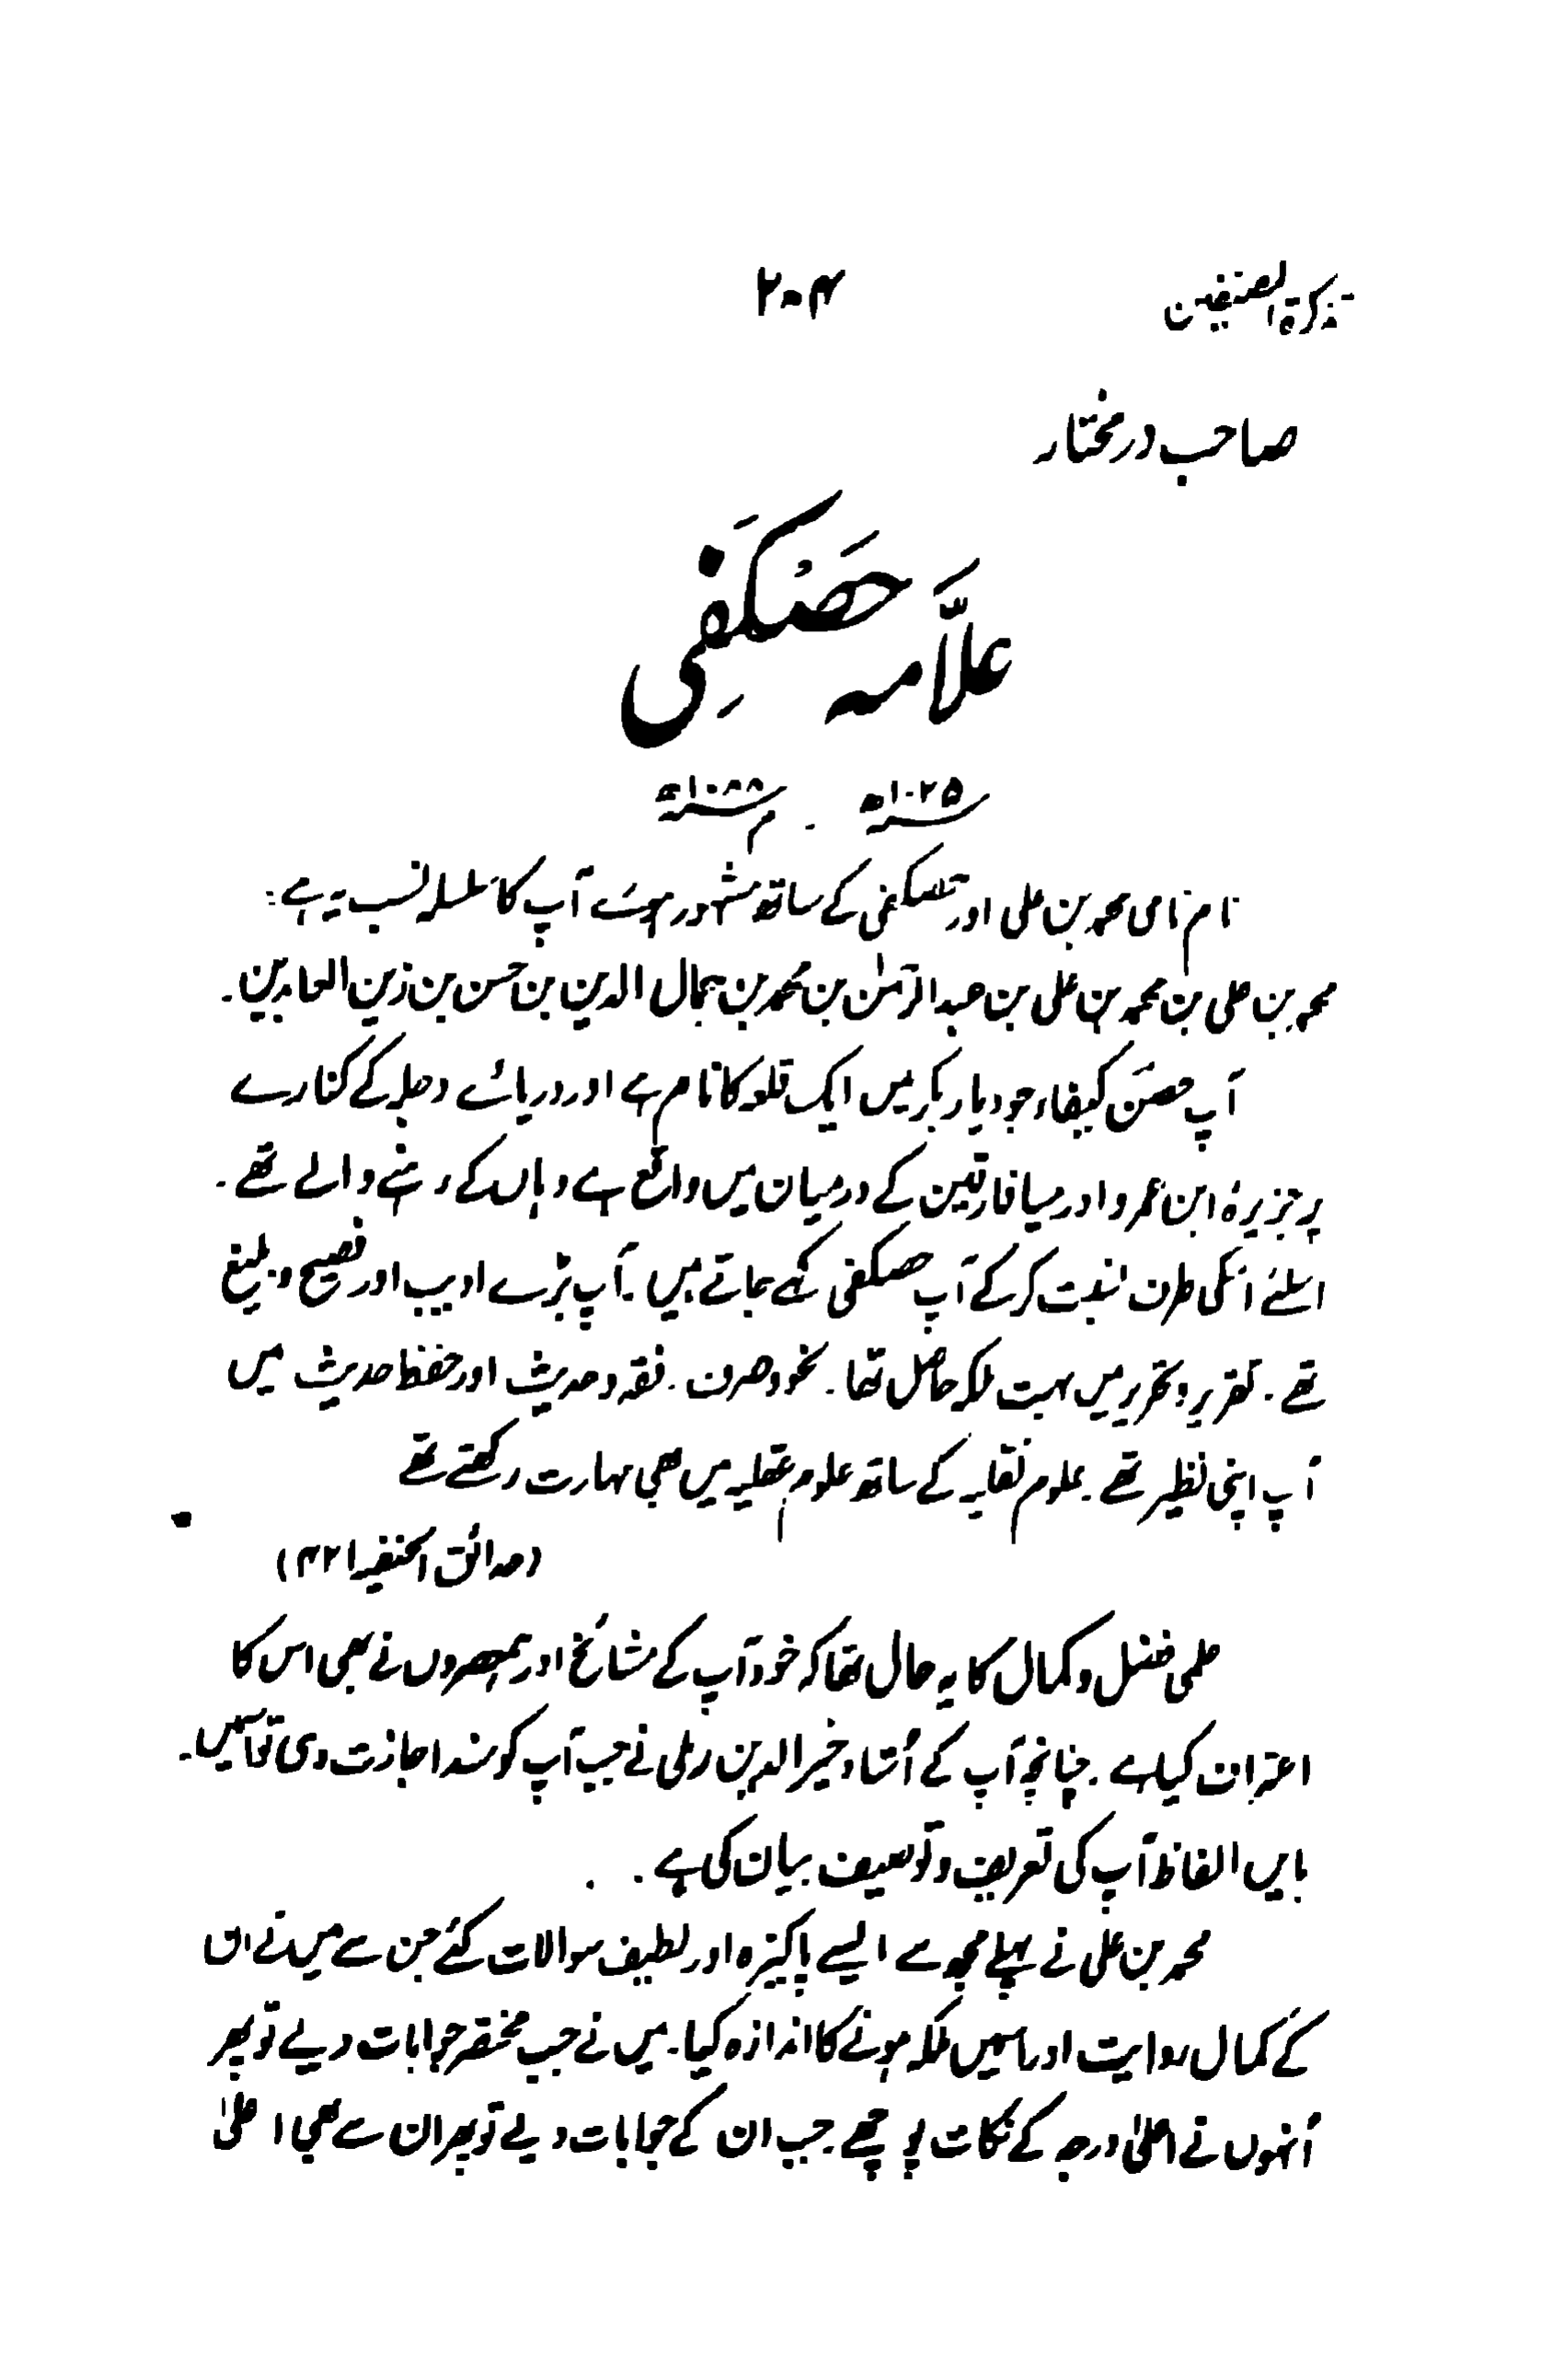 تذکرۃ المصنفین ۲۰۴
صاحب درمختار
علاَّمہ حَصْکَفِی
۱۰۲۵ھ - م ۱۰۸۸ھ
نام نامی محمد بن علی اور حصکفی کے ساتھ مشہور ہے آپ کا سلسلہ نسب یہ ہے :
محمد بن علی بن محمد بن علی بن عبدالرحمٰن بن محمد بن جمال الدین بن حسن بن زین العابدین ۔
آپ حصن کیفا، جو دیار بکر میں ایک قلعہ کا نام ہے اور دریائے دجلہ کے کنارے
پر جزیرۂ ابن عمر و اور میافارقین کے درمیان میں واقع ہے وہاں کے رہنے والے تھے ۔
اسلئے اسکی طرف نسبت کرکے آپ حصکفی کہے جاتے ہیں ۔ آپ بڑے ادیب اور فصیح و بلیغ
تھے ۔ تقریر و تحریر میں بہت ملکہ حاصل تھا ۔ نحو و صرف ۔ فقہ و حدیث اور حفظ حدیث میں
آپ اپنی نظیر تھے ۔ علوم نقلیہ کے ساتھ علوم عقلیہ میں بھی مہارت رکھتے تھے
(حدائق الحنفیہ ۴۲۱)
علمی فضل و کمال کا یہ حال تھا کہ خود آپ کے مشائخ اور ہمعصروں نے بھی اس کا
اعتراف کیا ہے ۔ چنانچہ آپ کے اُستاد خیرالدین رملی نے جب آپ کو سند اجازت دی تو اسمیں ۔
بایں الفاظ آپ کی تعریف و توصیف بیان کی ہے ۔
محمد بن علی نے پہلے مجھ سے ایسے پاکیزہ اور لطیف سوالات کئے جن سے میں نے ان
کے کمال روایت اور اسمیں ملکہ ہونے کا اندازہ کیا ۔ میں نے جب مختصر جوابات دیے تو پھر
اُنہوں نے اعلیٰ درجہ کے نکات پوچھے ۔ جب ان کے جوابات دیے تو پھر ان سے بھی اعلیٰ